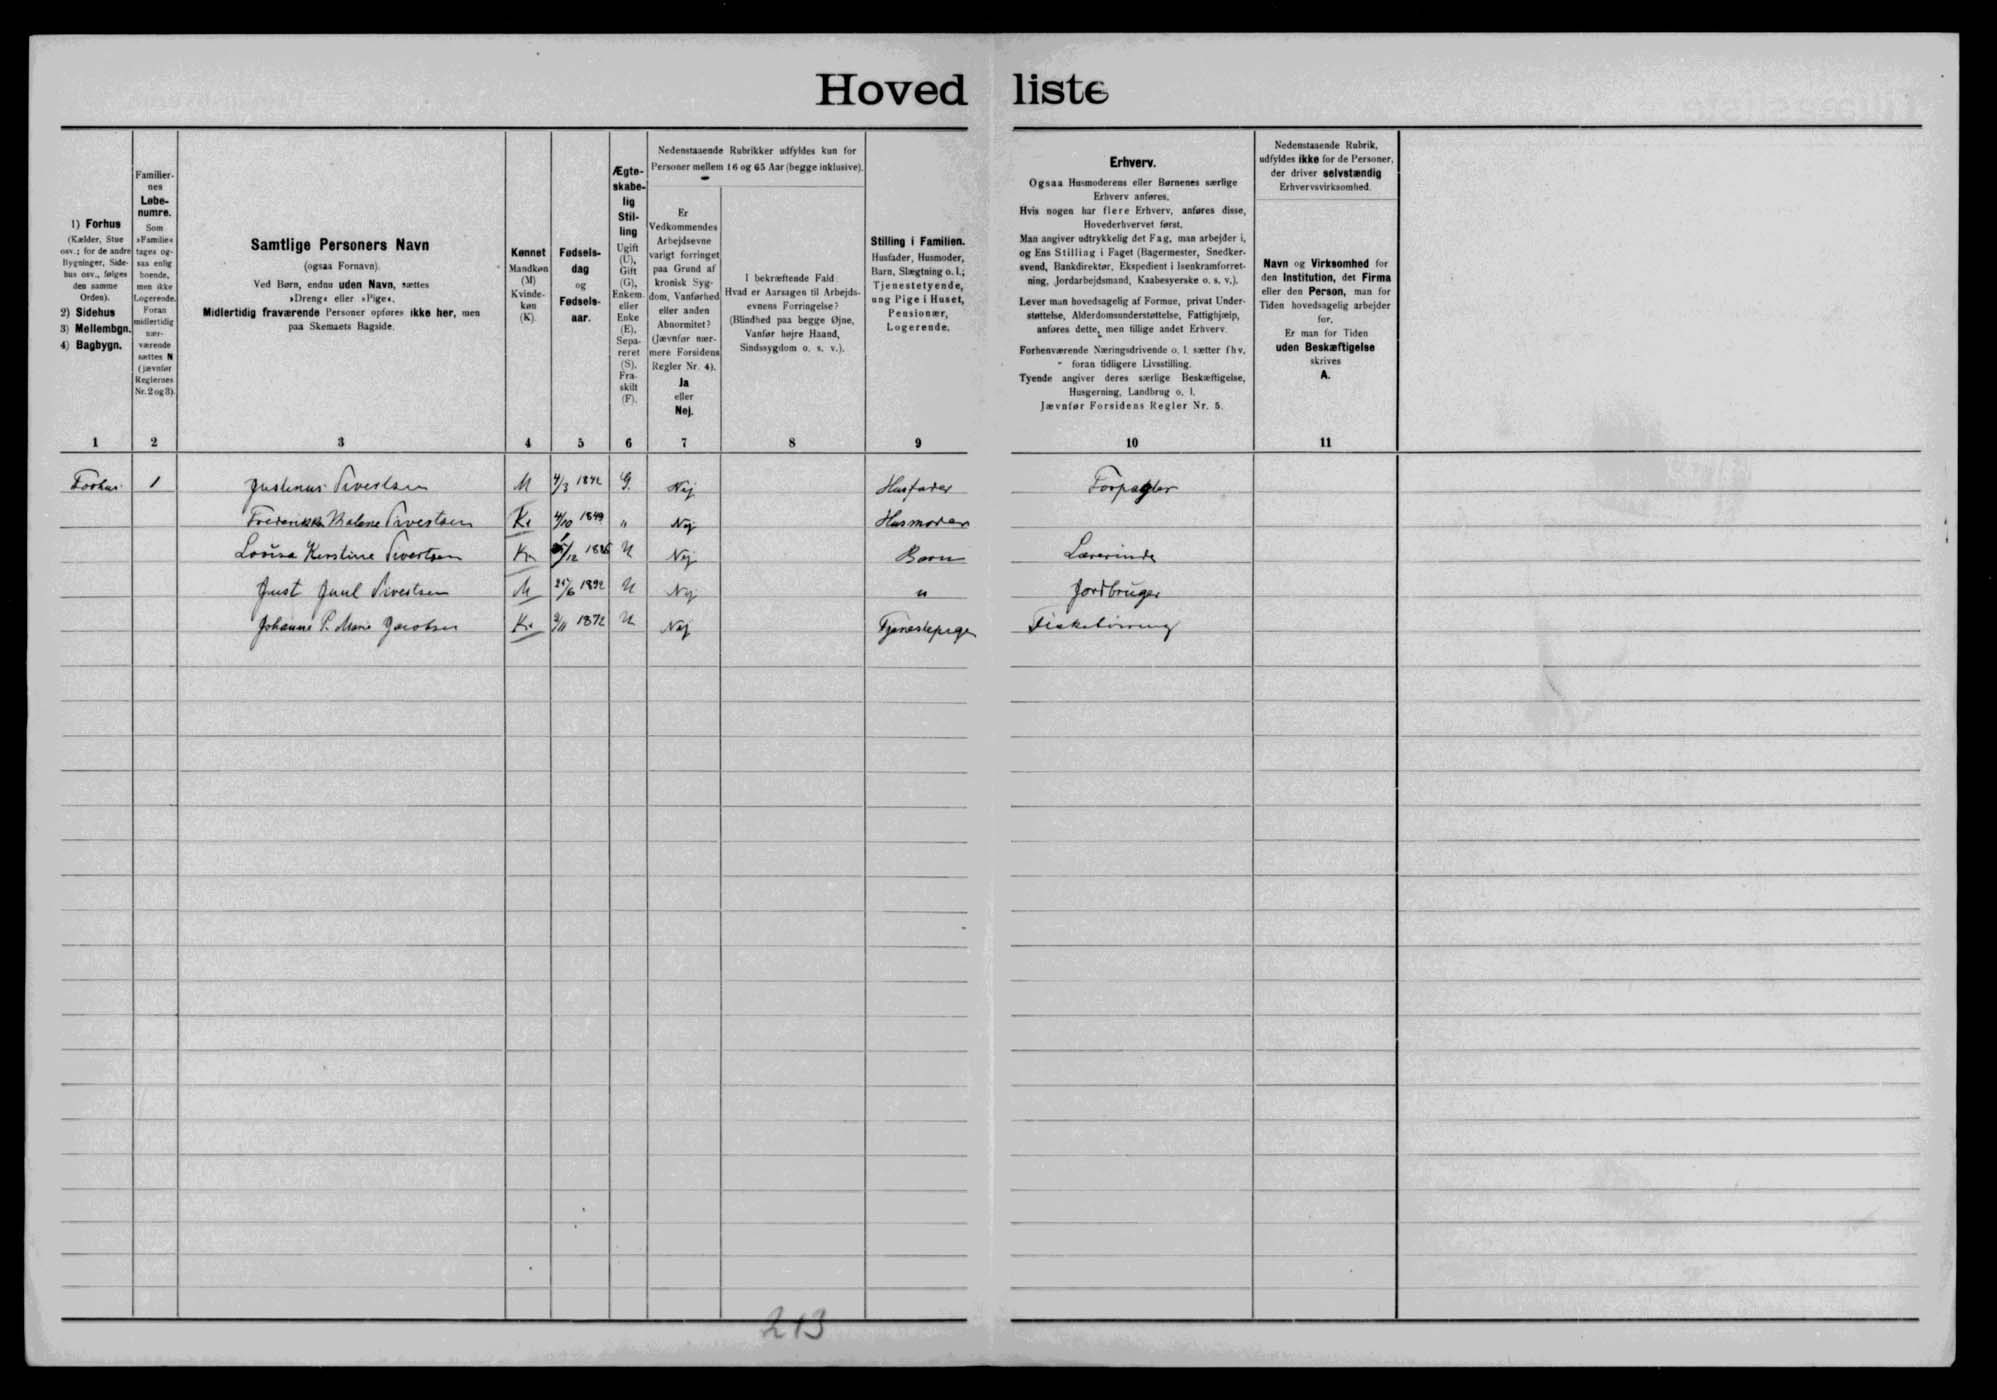 Hovedliste
1) Forhus
(Kælder, Stue
osv.; for de andre
Bygninger, Side-
hus osv., følges
den samme
Orden).
2) Sidehus
3) Mellembgn.
4) Bagbygn.
Familier-
nes
Løbe-
numre.
Som
»Familie«
tages og-
saa enlig
boende,
men ikke
Logerende.
Foran
midlertidig
nær-
værende
sættes N
(jævnfør
Reglernes
Nr. 2 og 3).
Samtlige Personers Navn
(ogsaa Fornavn).
Ved Børn, endnu uden Navn, sættes
»Dreng« eller »Pige«.
Midlertidig fraværende Personer opføres ikke her, men
paa Skemaets Bagside.
Kønnet
Mandkøn
(M)
Kvinde-
køn
(K).
Fødsels-
dag
og
Fødsels-
aar.
Ægte-
skabe-
lig
Stil-
ling
Ugift
(U),
Gift
(G),
Enkem.
eller
Enke
(E),
Sepa-
reret
(S),
Fra-
skilt
(F).
Nedenstaaende Rubrikker udfyldes kun for
Personer mellem 16 og 65 Aar (begge inklusive).
Er
Vedkommendes
Arbejdsevne
varigt forringet
paa Grund af
kronisk Syg-
dom, Vanførhed
eller anden
Abnormitet?
(Jævnfør nær-
mere Forsidens
Regler Nr. 4).
Ja
eller
Nej.
I bekræftende Fald:
Hvad er Aarsagen til Arbejds-
evnens Forringelse?
(Blindhed paa begge Øjne,
Vanfør højre Haand,
Sindssygdom o. s. v.).
Stilling i Familien.
Husfader, Husmoder,
Barn, Slægtning o. l.;
Tjenestetyende,
ung Pige i Huset,
Pensionær,
Logerende.
Erhverv.
Ogsaa Husmoderens eller Børnenes særlige
Erhverv anføres.
Hvis nogen har flere Erhverv, anføres disse,
Hovederhvervet først.
Man angiver udtrykkelig det Fag, man arbejder i,
og Ens Stilling i Faget (Bagermester, Snedker-
svend, Bankdirektør, Ekspedient i Isenkramforret-
ning, Jordarbejdsmand, Kaabesyerske o. s. v.).
Lever man hovedsagelig af Formue, privat Under-
støttelse, Alderdomsunderstøttelse, Fattighjælp,
anføres dette, men tillige andet Erhverv.
Forhenværende Næringsdrivende o. l. sætter fhv.
foran tidligere Livsstilling.
Tyende angiver deres særlige Beskæftigelse,
Husgerning, Landbrug o. l.
Jævnfør Forsidens Regler Nr. 5.
Nedenstaaende Rubrik,
udfyldes ikke for de Personer,
der driver selvstændig
Erhvervsvirksomhed.
Navn og Virksomhed for
den Institution, det Firma
eller den Person, man for
Tiden hovedsagelig arbejder
for.
Er man for Tiden
uden Beskæftigelse
skrives
A.
1 2 3 4 5 6 7 8 9 10 11
Forhus. 1 Justinus Sivertsen M 4/3 1842 G. Nej Husfader Forpagter
Frederikke Malene Sivertsen K. 4/10 1849 „ Nej Husmoder
Lovisa Kirstine Sivertsen K. /12 U Nej Barn Lærerinde
Just Juul Sivertsen M 25/6 1892 U Nej „ Jordbruger
Johanne P. Marie Jacobsen K. 9/11 1872 U Nej Tjenestepige
213